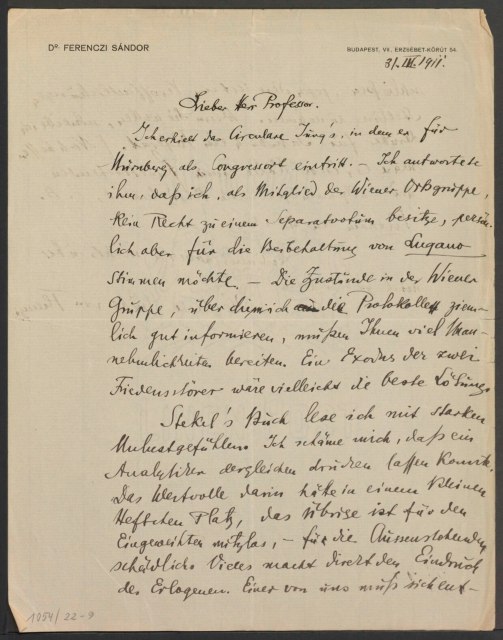 Dr. FERENCZI SÁNDOR
BUDAPEST, VII. ERZSÉBET-KÖRÚT 54.
31. III. 1911.
Lieber Herr Professor.
Ich erhielt das Circulare Jung's, in dem er für
Nürnberg als Congressort eintritt. – Ich antwortete
ihm, daß ich, als Mitglied der Wiener Ortsgruppe,
kein Recht zu einem Separatvotum besitze, persön-
lich aber für die Beibehaltung von Lugano
stimmen möchte. – Die Zustände in der Wiener
Gruppe, über die mich die Protokolle ziem-
lich gut informieren, müßen Ihnen viel Unan-
nehmlichkeiten bereiten. Ein Exodus der zwei
Friedensstörer wäre vielleicht die beste Lösung.
Stekel's Buch lese ich mit starken
Unlustgefühlen. Ich schäme mich, daß ein
Analytiker dergleichen drucken lassen konnte.
Das Wertvolle darin hätte in einem kleinen
Heftchen Platz, das übrige ist für den
Eingeweihten nutzlos, – für die Aussenstehenden
schädlich. Vieles macht direkt den Eindruck
des Erlogenen. Einer von uns muß sich ent-
1054/22-9